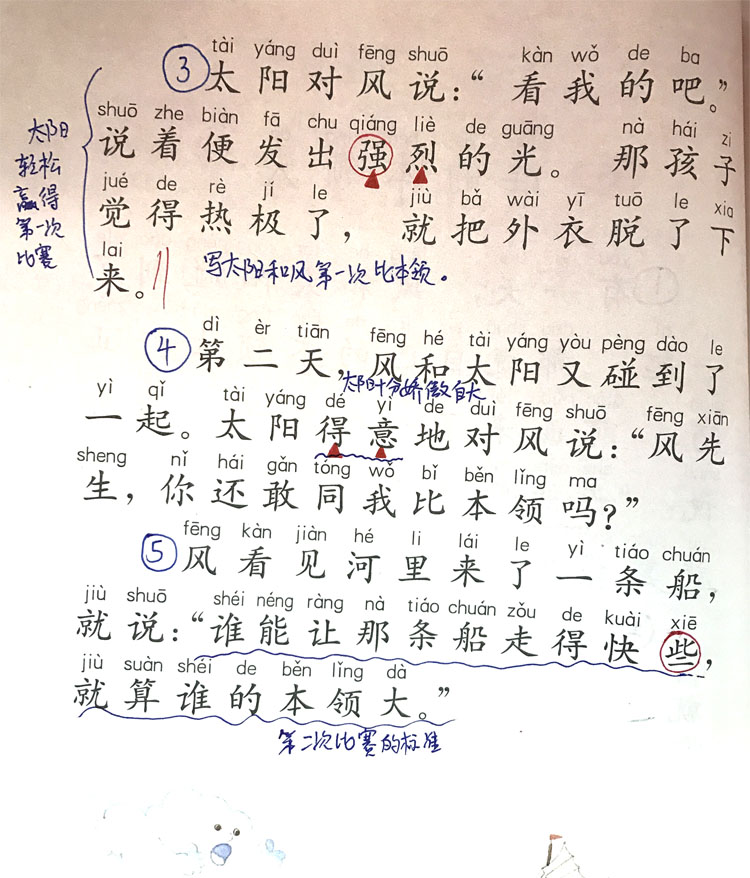 tài yáng duì fēng shuō kàn wǒ de ba
③太阳对风说：“看我的吧。”
shuō zhe biàn fā chu qiáng liè de guāng nà hái zi
说着便发出强烈的光。那孩子
jué de rè jí le jiù bǎ wài yī tuō le xia
觉得热极了，就把外衣脱了下
lai
来。
太阳
轻松
赢得
第一次
比赛
写太阳和风第一次比本领。
dì èr tiān fēng hé tài yáng yòu pèng dào le
④第二天，风和太阳又碰到了
太阳十分骄傲自大
yì qǐ tài yáng dé yì de duì fēng shuō fēng xiān
一起。太阳得意地对风说：“风先
sheng nǐ hái gǎn tóng wǒ bǐ běn lǐng ma
生，你还敢同我比本领吗？”
fēng kàn jiàn hé li lái le yì tiáo chuán
⑤风看见河里来了一条船，
jiù shuō shéi néng ràng nà tiáo chuán zǒu de kuài xiē
就说：“谁能让那条船走得快些，
jiù suàn shéi de běn lǐng dà
就算谁的本领大。”
第二次比赛的标准